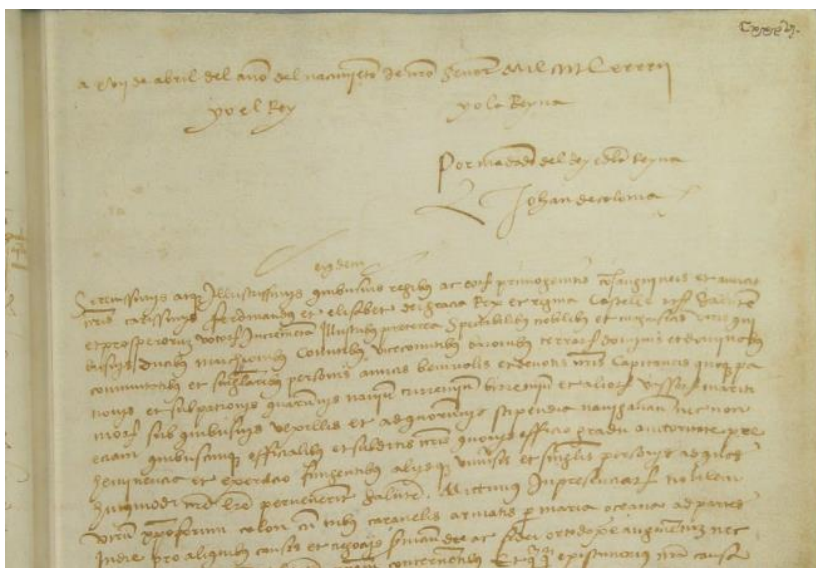 a xvij de abril del año del nacimiẽto de nr̃o Señor Mil CCCCLxxxxij
yo el Rey yo la Reyna
Por mãdado del Rey e dela Reyna
Johan de coloma
eiusdem
Serenissimis atq; Illustrissimis quibusuis regibus ac eorũ primogenitis cõsanguineis et amicis
nr̃is carissimis ferdinandus et elisabet dei gracia Rex et regina Castelle
et prosperorum votorũ Incrementa Illustribus preterea Spectabilibus nobilibus et magnificis viris qui
busuis ducibus marchionibus Comitibus vicecomitibus baronibus terrarũ dominis et dominabus
comunitatibus et singularibus personis amicis beniuolis et deuotis nr̃is Capitaneis quoq; pa
tronis et subpatronis quarumuis nauium triremium biremium et aliorũ vassorũ mariti
morũ sub quibusuis vexillis et ad quorumuis stipendia nauigancium nec non
eciam quibuscumq; officialibus et subditis nr̃is quouis officio gradu auctoritate pre
heminencia et exercicio fungentibus alijsq; vniuersis et singulis personis ad quos
huiusmodi nr̃e lr̃e peruenerint salutẽ. Mittimus Impresenciarũ nobilem
virum xp̃oforum colon cũ tribus carauelis armatis per maria oceana ad partes
Indie pro aliquibus causis et negocijs dei ac fidei ortodoxe augmentum nec
concernentibus